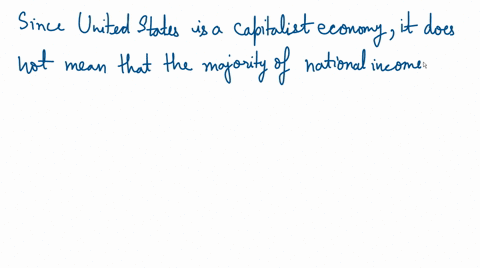 Since United States is a capitalist economy, it does
not mean that the majority of national income